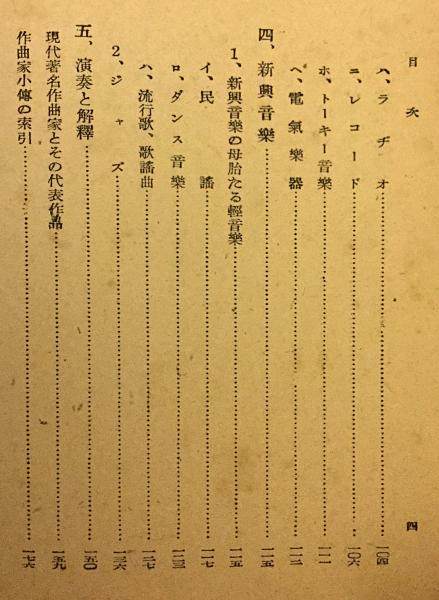 目次
四
ハ、ラヂオ……一〇四
ニ、レコード……一〇六
ホ、トーキー音樂……一一一
ヘ、電氣樂器……一一二
四、新興音樂……一一五
1、新興音樂の母胎たる輕音樂……一一五
イ、民謠……一一七
ロ、ダンス音樂……一二三
ハ、流行歌、歌謠曲……一二七
2、ジャズ……一三六
五、演奏と解釋……一五〇
現代著名作曲家とその代表作品……一五九
作曲家小傳の索引……一七六